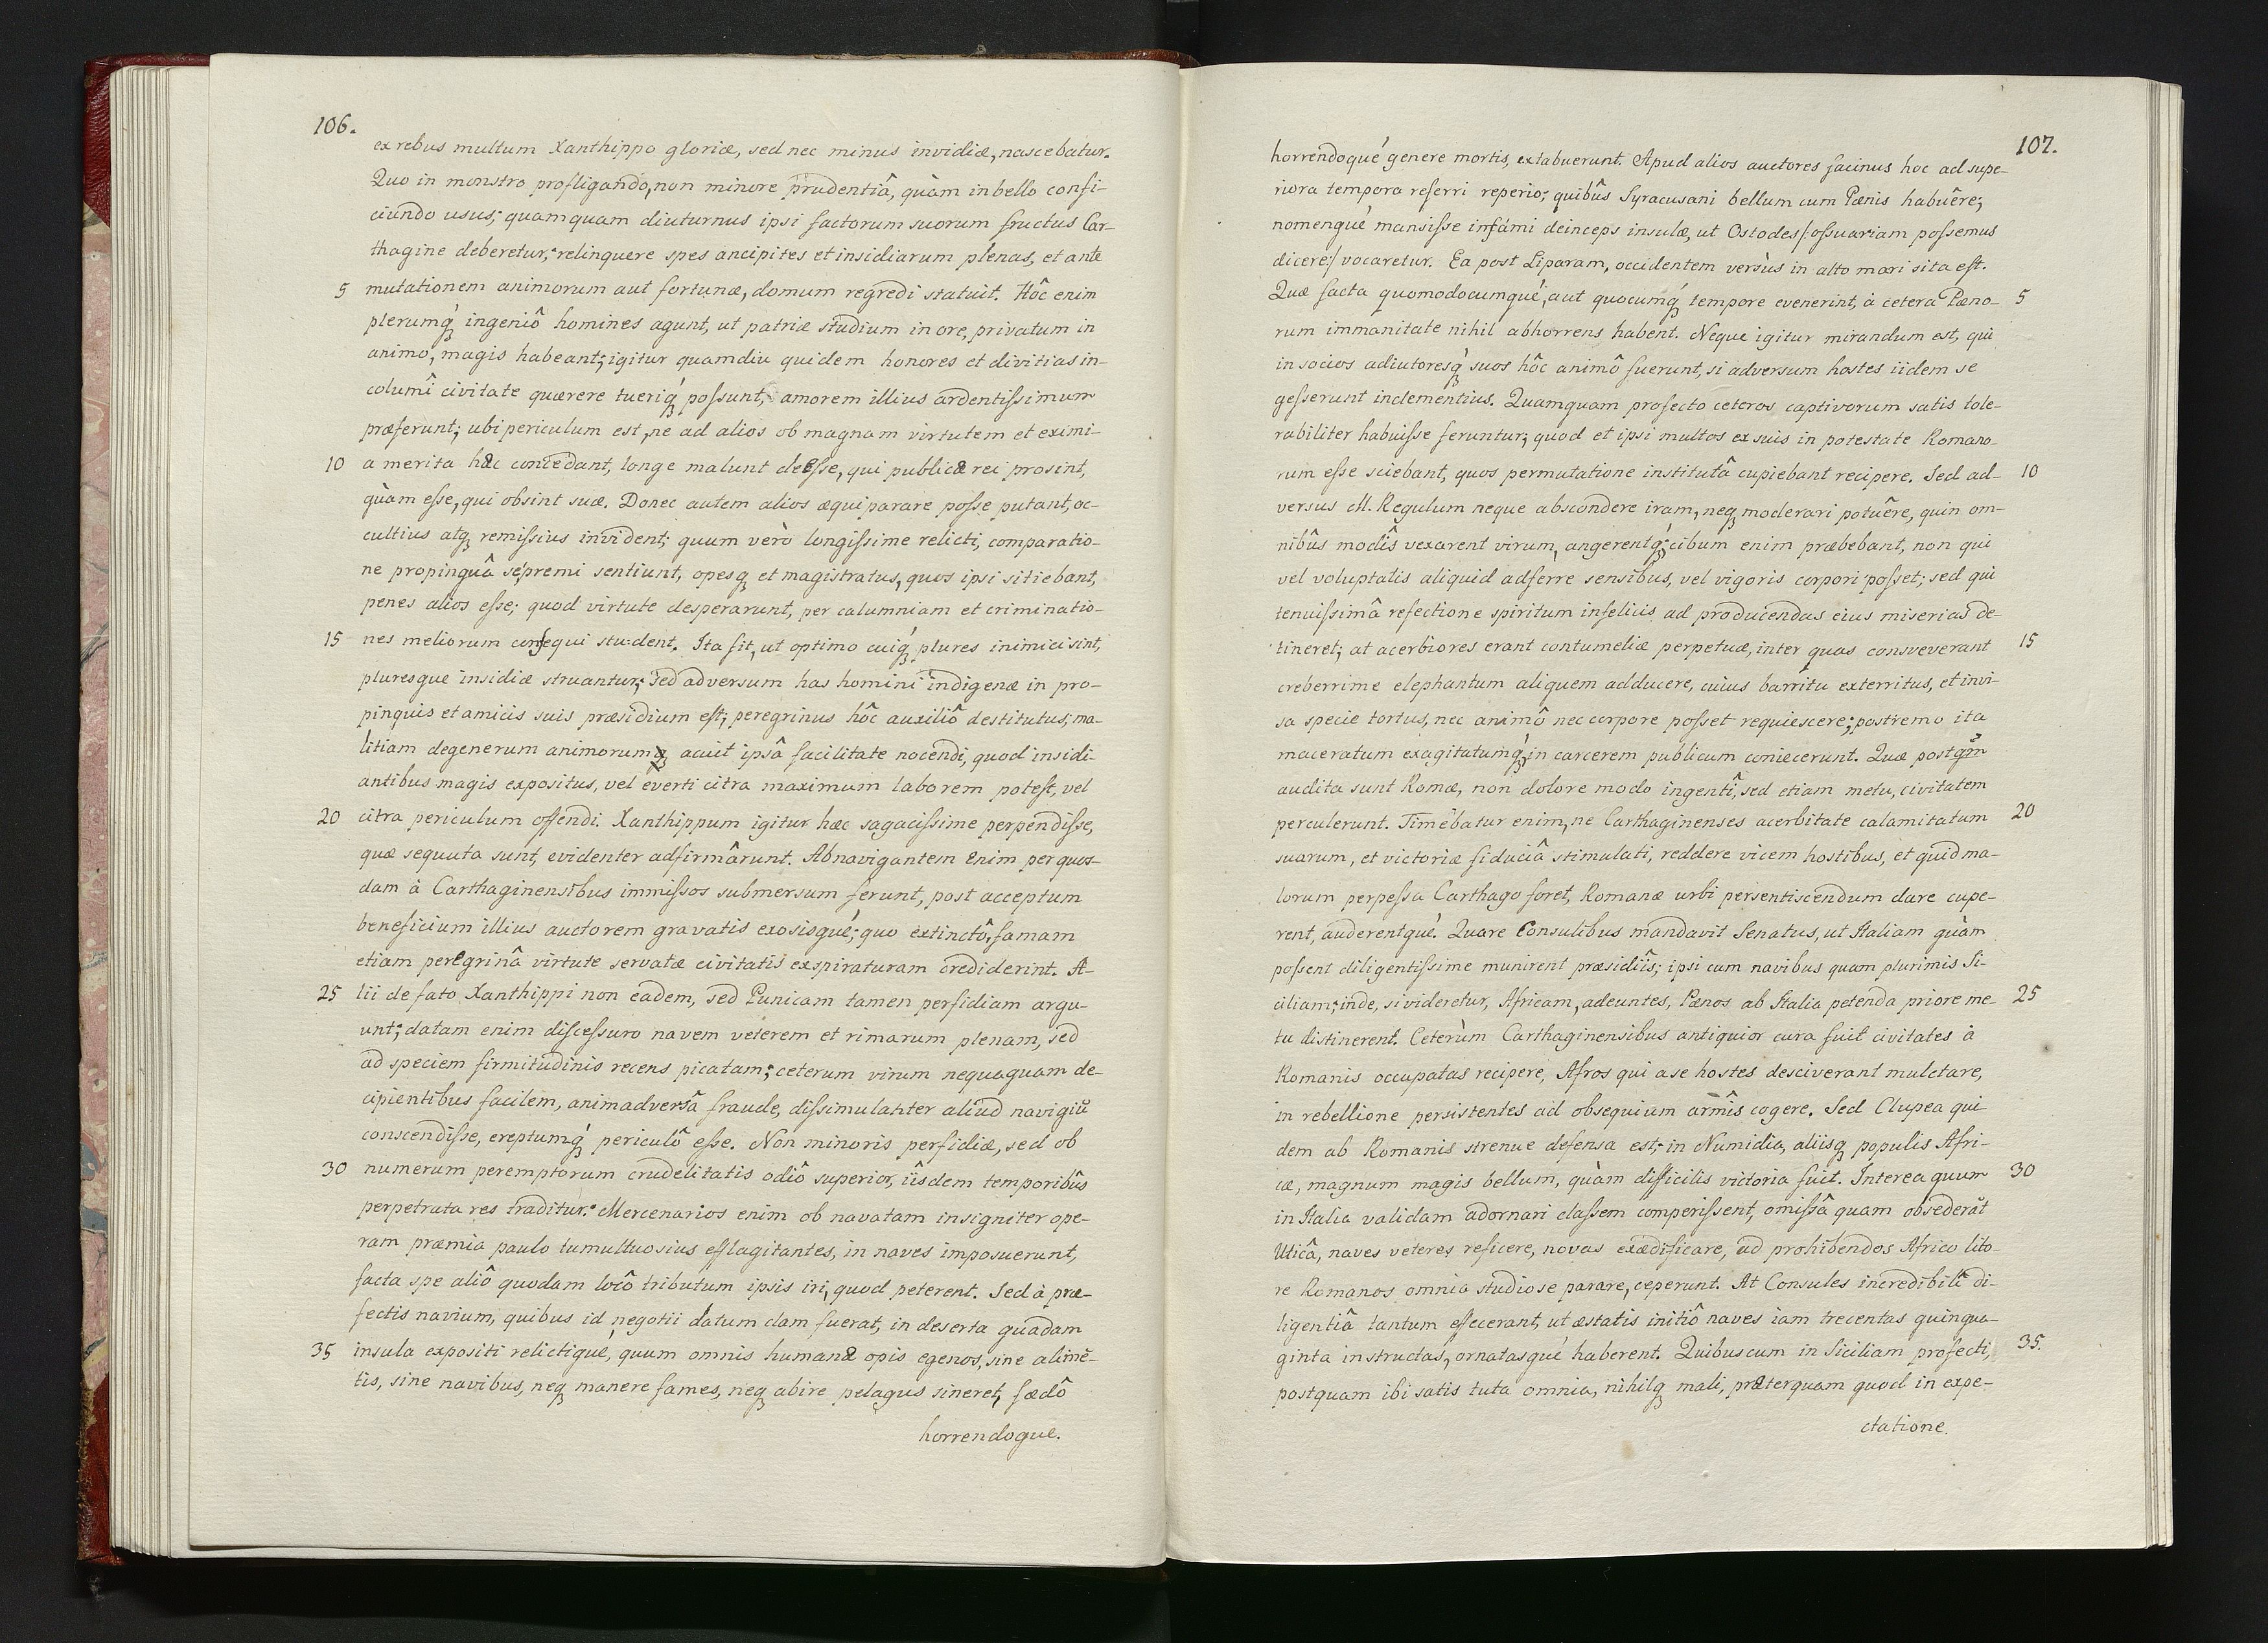 106.
ex rebus multum Xanthippo gloriæ, sed nec minus invidiæ, nascebatur.
Quo in monstro profligando, non minore prudentiâ, quàm in bello confi-
ciundo usus; quamquam diuturnus ipsi factorum suorum fructus Car-
thagine deberetur; relinquere spes ancipites et insidiarum plenas, et ante
5 mutationem animorum aut fortunæ, domum regredi statuit. Hôc enim
plerumq́ ingeniô homines agunt, ut patriæ studium in ore, privatum in
animo, magis habeant; igitur quamdiu quidem honores et divitias in-
columî civitate quærere tueriq́ possunt, amorem illius ardentissimum
præferunt; ubi periculum est, ne ad alios ob magnam virtutem et eximi-
10 a merita hæc concedant, longe malunt deesse, qui publicæ rei prosint,
quàm esse, qui obsint suæ. Donec autem alios æquiparare posse putant, oc-
cultius atq remissius invident; quum verò longissime relicti, comparatio-
ne propinquâ sépremi sentiunt, opesq et magistratus, quos ipsi sitiebant,
penes alios esse; quod virtute desperarunt, per calumniam et criminatio-
15 nes meliorum consequi student. Ita fit, ut optimo cuiq́ plures inimici sint,
pluresque insidiæ struantur; sed adversum has homini indigenæ in pro-
pinquis et amicis suis præsidium est; peregrinus hôc auxiliô destitutus, ma-
litiam degenerum animorum acuit ipsâ facilitate nocendi, quod insidi-
antibus magis expositus, vel everti citra maximum laborem potest, vel
20 citra periculum offendi. Xanthippum igitur hæc sagacissime perpendisse,
quæ sequuta sunt, evidenter adfirmârunt. Abnavigantem enim per quos-
dam à Carthaginensibus immissos submersum ferunt, post acceptum
beneficium illius auctorem gravatis exosisqué; quo extinctô, famam
etiam peregrinâ virtute servatæ civitatis exspiraturam crediderint. A-
25 lii de fato Xanthippi non eadem, sed Punicam tamen perfidiam argu-
unt; datam enim discessuro navem veterem et rimarum plenam, sed
ad speciem firmitudinis recens picatam; ceterum virum nequaquam de-
cipientibus facilem, animadversâ fraude, dissimulanter aliud navigiũ
conscendisse, ereptumq́ periculô esse. Non minoris perfidiæ, sed ob
30 numerum peremptorum crudelitatis odiô superior, iîsdem temporibûs
perpetrata res traditur. Mercenarios enim ob navatam insigniter ope-
ram præmia paulo tumultuosius efflagitantes, in naves imposuerunt,
facta spe aliô quodam locô tributum ipsis iri, quod peterent. Sed à præ-
fectis navium, quibus id negotii datum clam fuerat, in deserta quadam
35 insula expositi relictiqué, quum omnis humanæ opis egenos, sine alimẽ-
tis, sine navibus, neq manere fames, neq abire pelagus sineret, fædô
horrendoque.
107.
horrendoqué genere mortis, extabuerunt. Apud alios auctores facinus hoc ad supe-
riora tempora referri reperio; quibûs Syracusani bellum cum Pœnis habuêre;
nomenqué mansisse infámi deinceps insulæ, ut Ostodes /: ossuariam possemus
dicere:/ vocaretur. Ea post Liparam, occidentem versùs in alto mari sita est.
Quæ facta quomodocumqué, aut quocumq́ tempore evenerint, à cetera Pœno- 5
rum immanitate nihil abhorrens habent. Neque igitur mirandum est, qui
in socios adiutoresq́ suos hôc animô fuerunt, si adversum hostes iidem se
gesserunt inclementius. Quamquam profecto ceteros captivorum satis tole-
rabiliter habuisse feruntur; quod et ipsi multos ex suis in potestate Romano-
rum esse sciebant, quos permutatione institutâ cupiebant recipere. Sed ad- 10
versus M. Regulum neque abscondere iram, neq moderari potuêre, quin om-
nibûs modîs vexarent virum, angerentq́; cibum enim præbebant, non qui
vel voluptatis aliquid adferre sensibus, vel vigoris corpori posset; sed qui
tenuissimâ refectione spiritum infelicis ad producendas eius miserias de-
tineret; at acerbiores erant contumeliæ perpetuæ, inter quas consveverant 15
creberrime elephantum aliquem adducere, cuius barritu exterritus, et invi-
sa specie tortus, nec animô nec corpore posset requiescere; postremo ita
maceratum exagitatumq́ in carcerem publicum coniecerunt. Quæ postqm̃
audita sunt Romæ, non dolore modo ingentî, sed etiam metu, civitatem
perculerunt. Timebatur enim, ne Carthaginenses acerbitate calamitatum 20
suarum, et victoriæ fiduciâ stimulati, reddere vicem hostibus, et quid ma-
lorum perpessa Carthago foret, Romanæ urbi persentiscendum dare cupe-
rent, auderentqué. Quare Consulibus mandavit Senatus, ut Italiam quàm
possent diligentissime munirent præsidiîs; ipsi cum navibus quam plurimis Si-
ciliam; inde, si videretur, Africam, adeuntes, Pœnos ab Italia petenda priore me- 25
tu distinerent. Ceterùm Carthaginensibus antiquior cura fuit civitates à
Romanis occupatas recipere, Afros qui a se hostes desciverant mulctare,
in rebellione persistentes ad obsequium armîs cogere. Sed Clupea qui-
dem ab Romanis strenue defensa est; in Numidia, aliisq populis Afri-
cæ, magnum magis bellum, quàm difficilis victoria fuit. Interea quum 30
in Italia validam adornari classem comperissent, omissâ quam obsederãt
Uticâ, naves veteres reficere, novas exædificare, ad prohibendos Africo lito-
re Romanos omnia studiose parare, ceperunt. At Consules incredibilî di-
ligentiâ tantum effecerant, ut æstatis initiô naves iam trecentas quinqua-
ginta instructas, ornatasqué haberent. Quibuscum in Siciliam profecti, 35.
postquam ibi satis tuta omnia, nihilq mali, præterquam quod in expe-
ctatione.